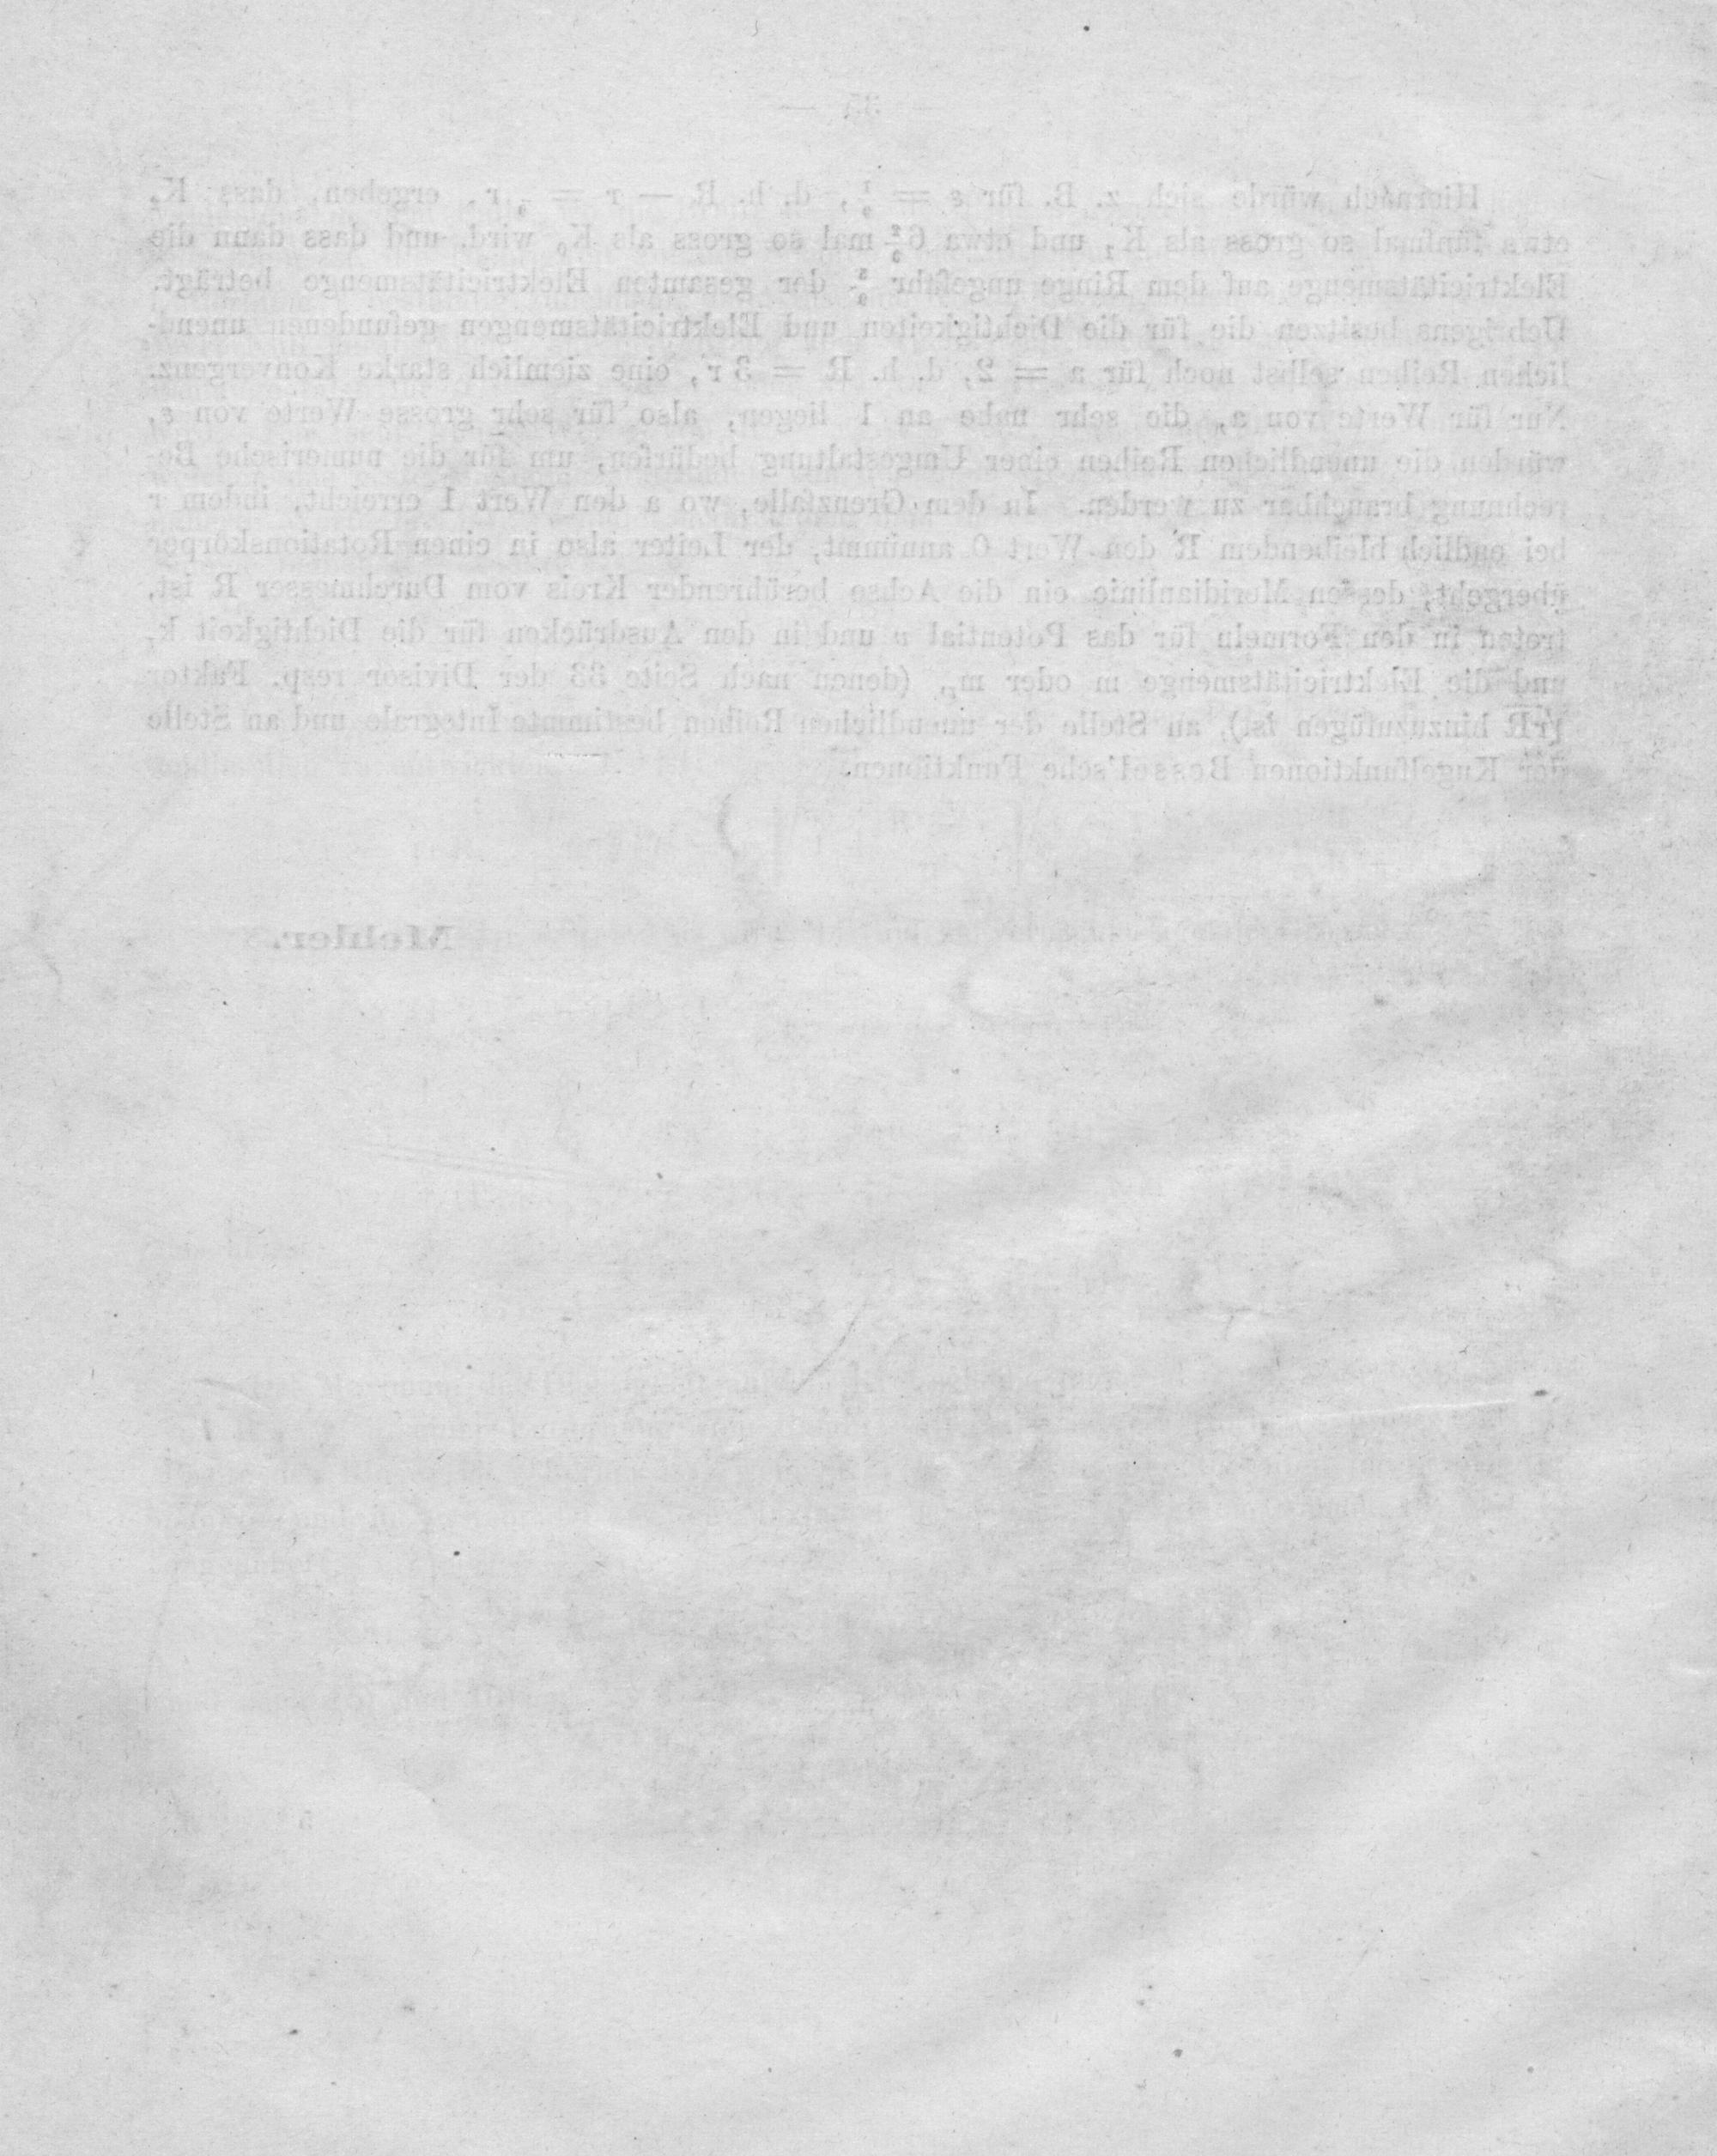 — 35 —
Hiernach würde sich z. B. für ε = d. h. R — r = r, ergeben, dass K₂
etwa fünfmal so gross als K₁ und etwa mal so gross als K₀ wird, und dass dann die
Elektricitätsmenge auf dem Ringe ungefähr der gesamten Elektricitätsmenge beträgt.
Uebrigens besitzen die für die Dichtigkeiten und Elektricitätsmengen gefundenen unend-
lichen Reihen selbst noch für a = 2, d. h. R = 3 r, eine ziemlich starke Konvergenz.
Nur für Werte von a, die sehr nahe an 1 liegen, also für sehr grosse Werte von ε,
würden die unendlichen Reihen einer Umgestaltung bedürfen, um für die numerische Be-
rechnung brauchbar zu werden. In dem Grenzfalle, wo a den Wert 1 erreicht, indem r
bei endlich bleibendem R den Wert 0 annimmt, der Leiter also in einen Rotationskörper
übergeht, dessen Meridianlinie ein die Achse berührender Kreis vom Durchmesser R ist,
treten in den Formeln für das Potential und in den Ausdrücken für die Dichtigkeit k,
und die Elektricitätsmenge m oder (denen nach Seite 33 der Divisor resp. Faktor
√rR hinzuzufügen ist), an Stelle der unendlichen Reihen bestimmte Integrale und an Stelle
der Kugelfunktionen Bessel'sche Funktionen.
Mehler.